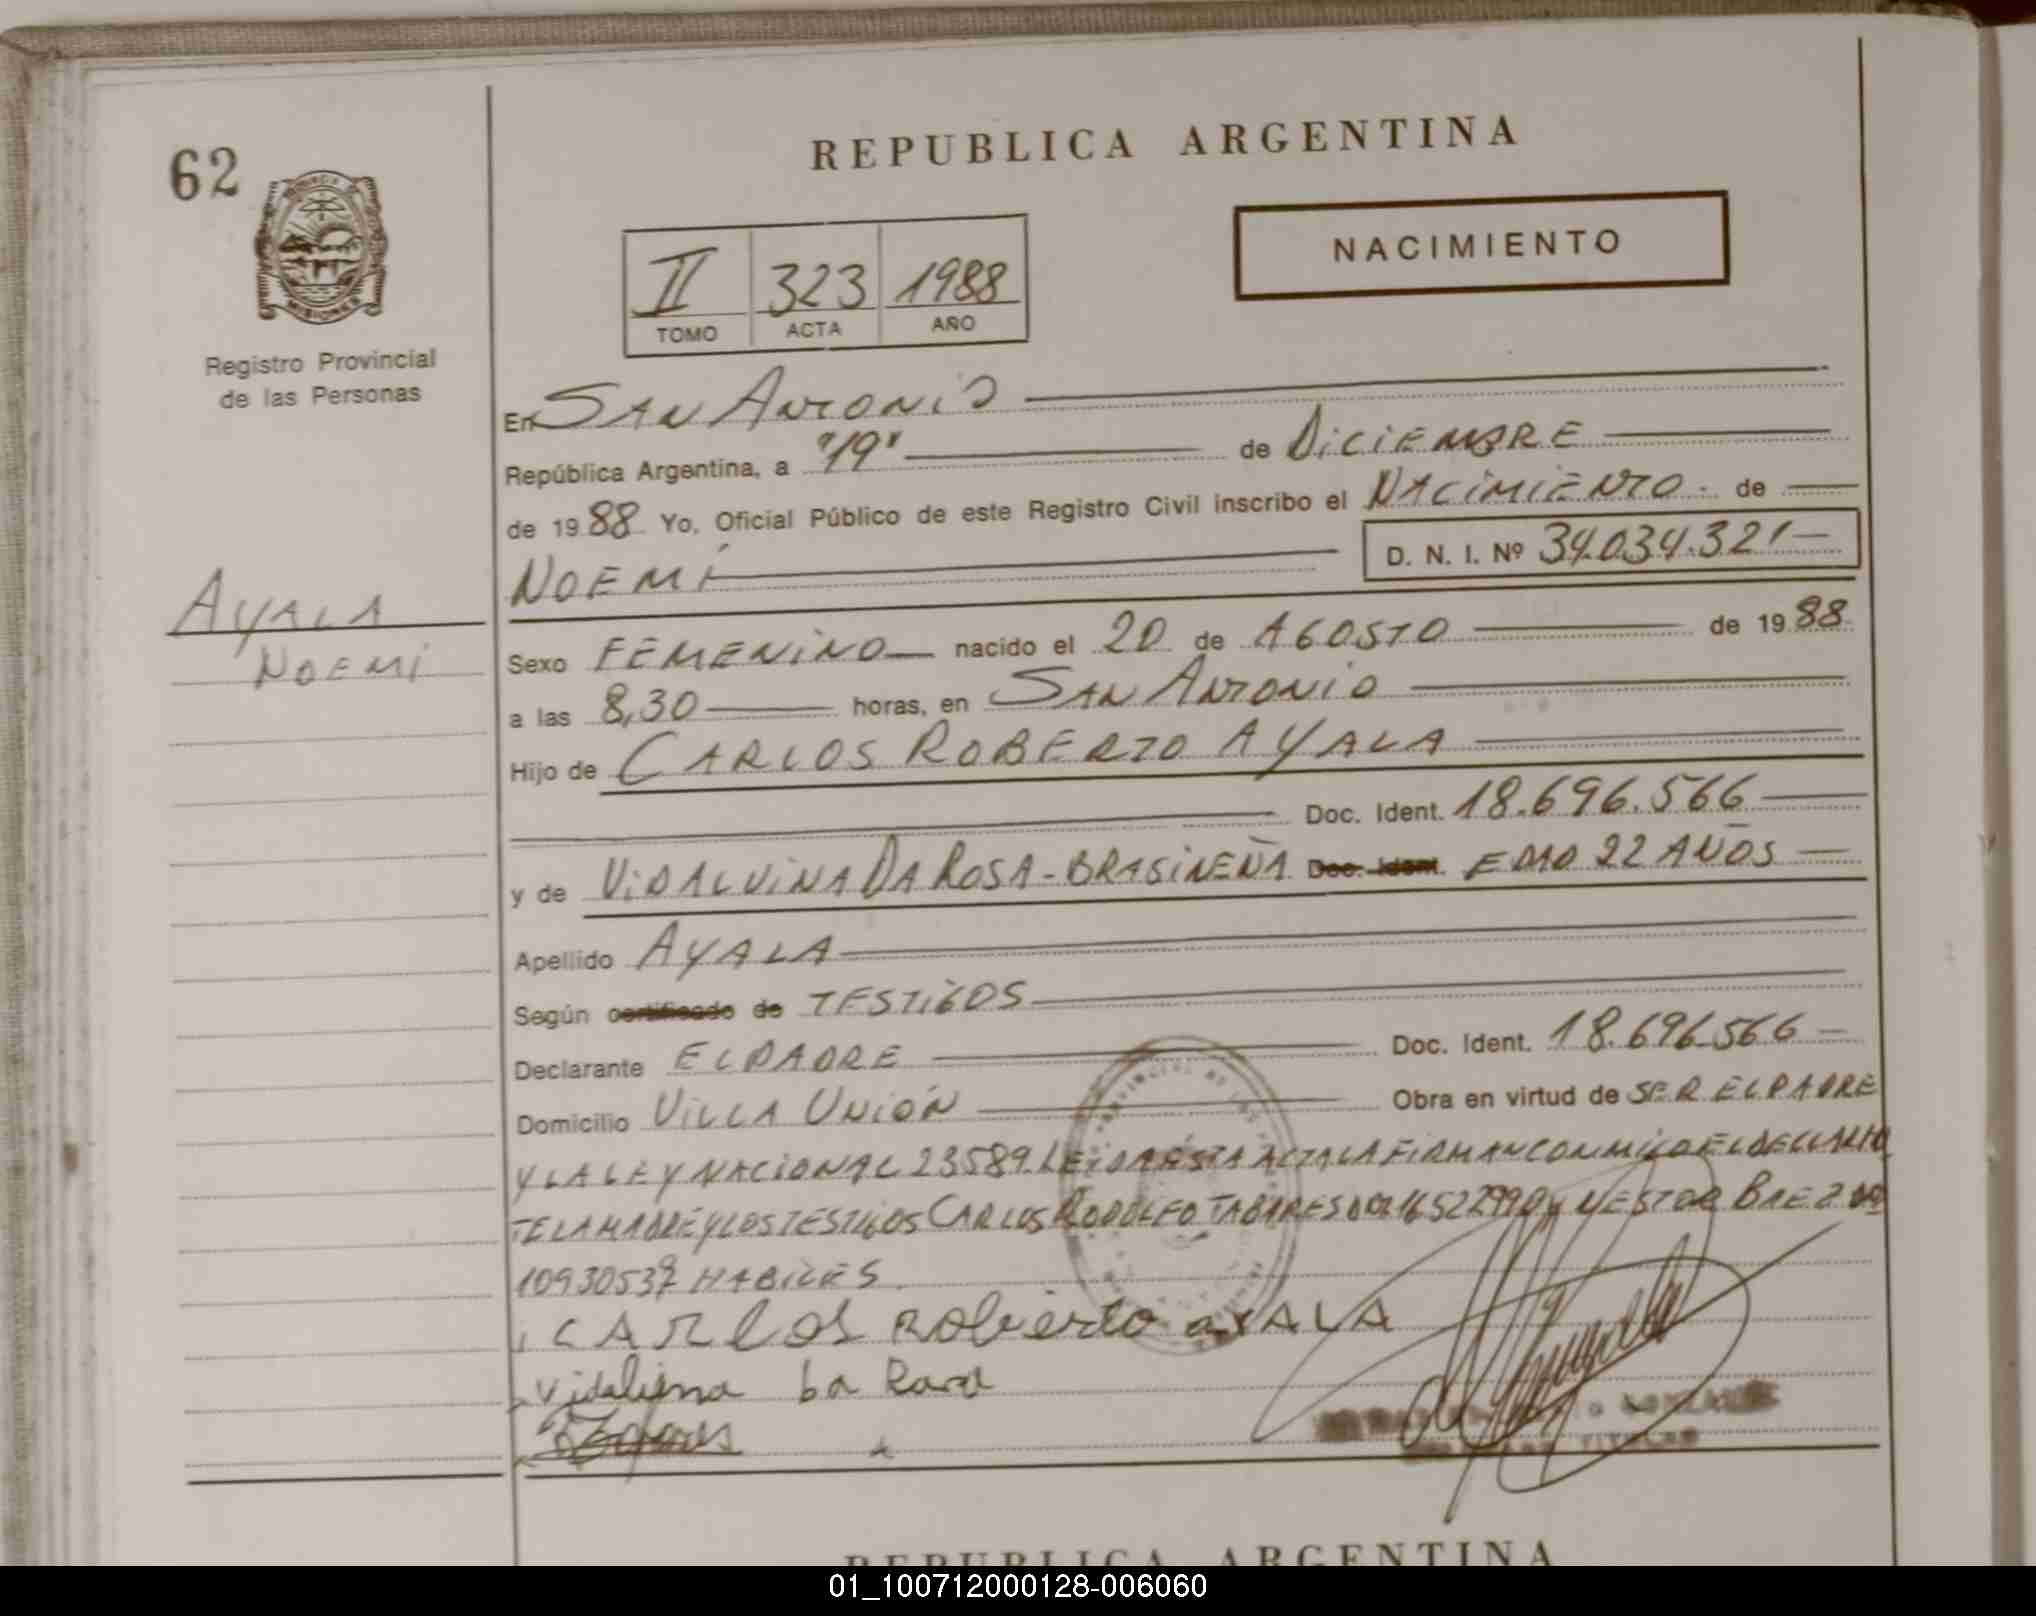 62
REPUBLICA ARGENTINA
NACIMIENTO
II 323 1988
TOMO ACTA AÑO
MISIONES
Registro Provincial
de las Personas
En SAN ANTONIO
República Argentina, a "19" de DICIEMBRE
de 1988 Yo, Oficial Público de este Registro Civil inscribo el NACIMIENTO de
NOEMÍ D. N. I. Nº 34.034.321
AYALA
NOEMI
Sexo FEMENINO nacido el 20 de AGOSTO de 1988
a las 8,30 horas, en SAN ANTONIO
Hijo de CARLOS ROBERTO AYALA
Doc. Ident. 18.696.566
y de VIDALVINA DA ROSA - BRASINEÑA Doc. Ident. EDAD 22 AÑOS
Apellido AYALA
Según certificado de TESTIGOS
Declarante EL PADRE Doc. Ident. 18.696.566
Domicilio VILLA UNIÓN Obra en virtud de SER EL PADRE
Y LA LEY NACIONAL 23589. LEIDA ESTA ACTA LA FIRMAN CONMIGO EL DECLARAN
TE LA MADRE Y LOS TESTIGOS CARLOS RODOLFO TABARES DOC 16522990 Y NESTOR BAEZ
HABILES
CARLOS Roberto AYALA
Da Rosa
REPUBLICA ARGENTINA
01_100712000128-006060